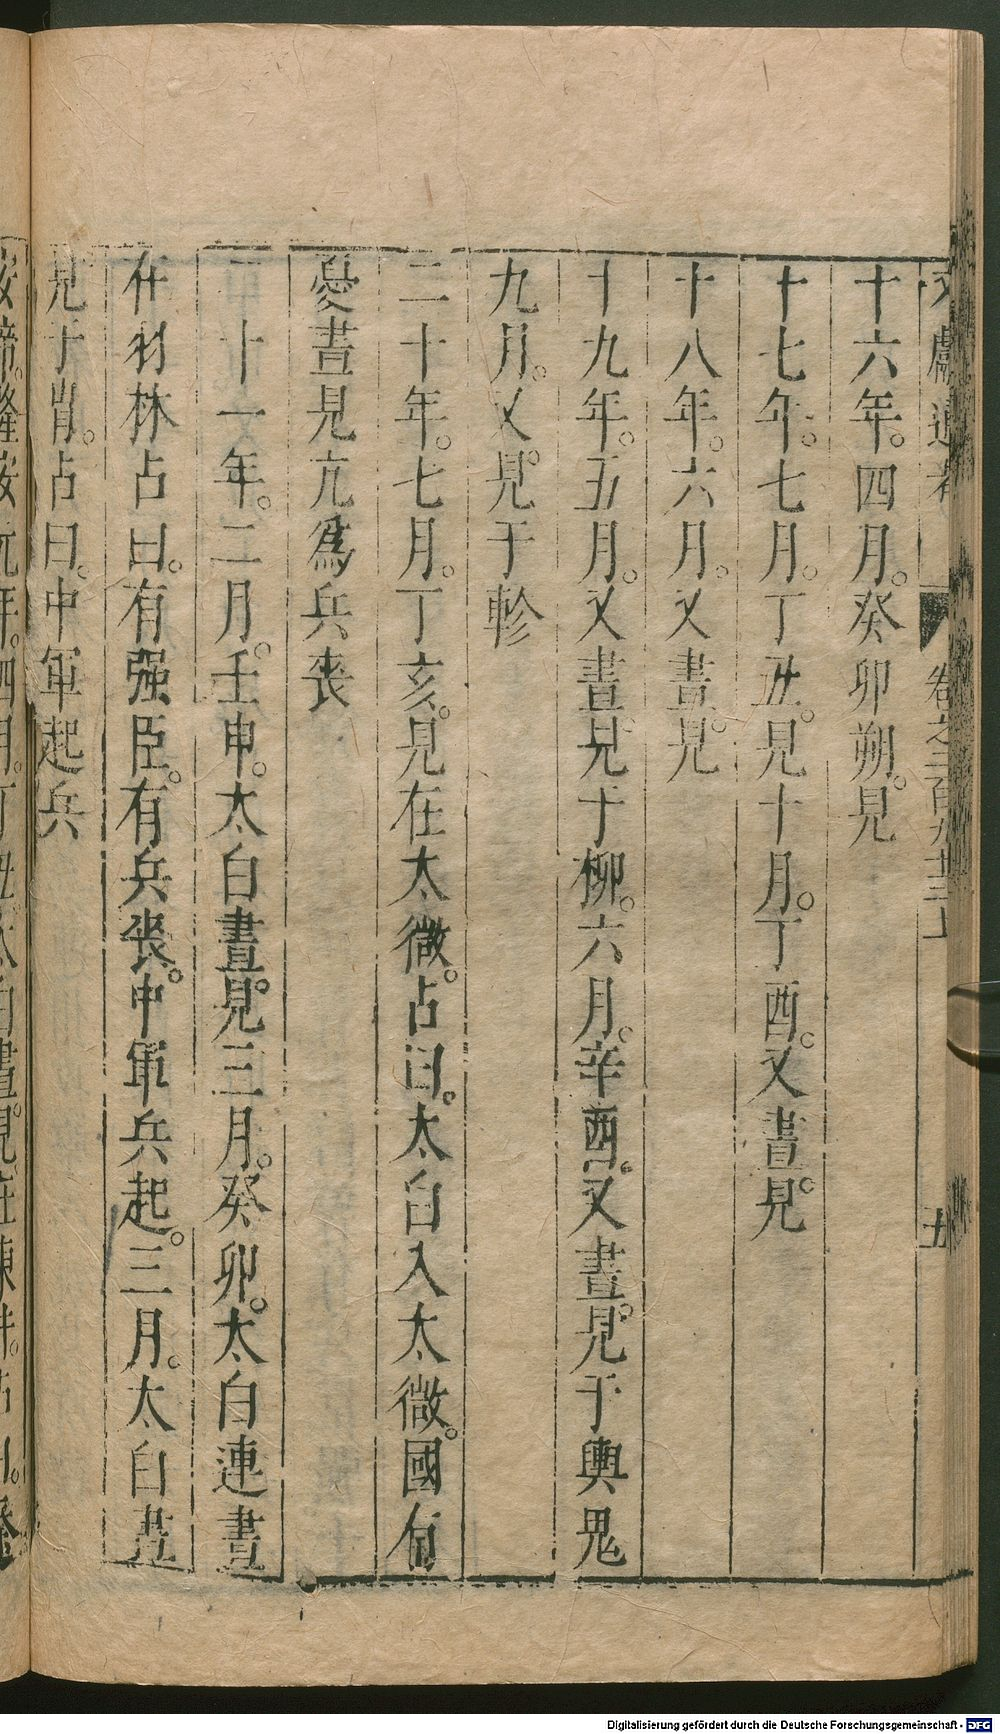 文獻通考 卷之二百九十三上 五
十六年。四月。癸卯朔。見
十七年。七月。丁丑。見十月。丁酉。又晝。見
十八年。六月。又晝。見
十九年。五月。又晝見于柳。六月。辛酉。又晝。見于輿鬼
九月。又。見于軫
二十年。七月。丁亥。見在太微。占曰。太白入太微。國有
憂晝見亢爲兵喪
二十一年。二月。壬申。太白晝。見三月。癸卯。太白連晝
在羽林占曰。有强臣。有兵喪。中軍兵起。三月。太白晝
見于胃。占曰。中軍起兵
Digitalisierung gefördert durch die Deutsche Forschungsgemeinschaft - DFG